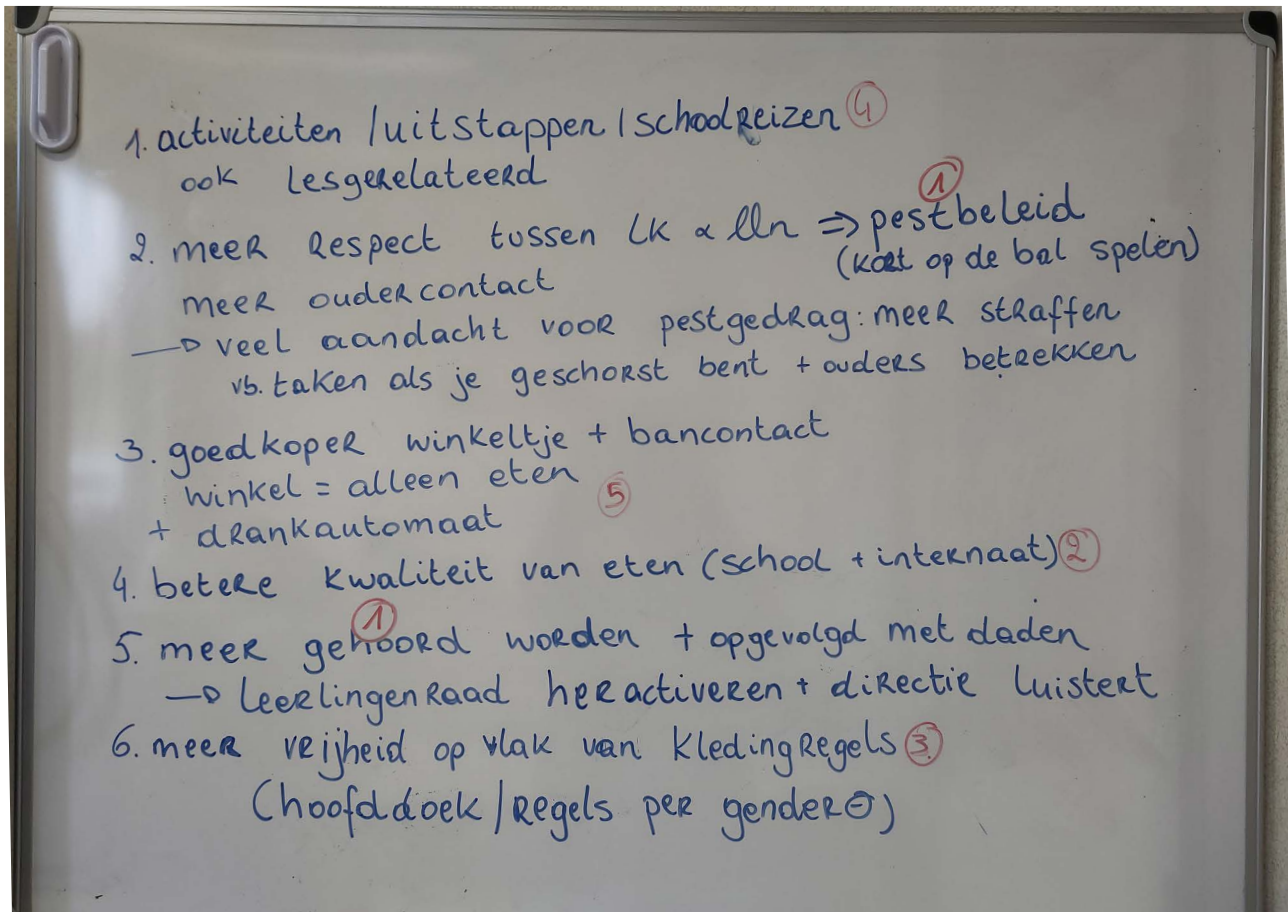 1. activiteiten / uitstappen / schoolreizen ④
ook lesgerelateerd
2. meer respect tussen lk & lln ⇒ pestbeleid ①
(kort op de bal spelen)
meer oudercontact
→ veel aandacht voor pestgedrag: meer straffen
vb. taken als je geschorst bent + ouders betrekken
3. goedkoper winkeltje + bancontact
winkel = alleen eten ⑤
+ drankautomaat
4. betere kwaliteit van eten (school + internaat) ②
① 
5. meer gehoord worden + opgevolgd met daden
→ leerlingenraad heractiveren + directie luistert
6. meer vrijheid op vlak van kledingregels ③
(hoofddoek / regels per gender ⊖)